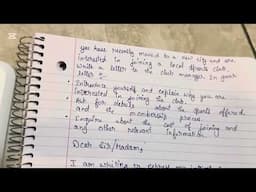 you have recently moved to a new city and are
interested in joining a local sports club.
Write a letter to the club manager. In your
letter :-
• Introduce yourself and explain why you are
interested in joining the club.
• Ask for details about the sports offered
and the membership process.
• Inquire about the cost of joining and
any other relevant information.
Dear Sir/Madam,
I am writing to express